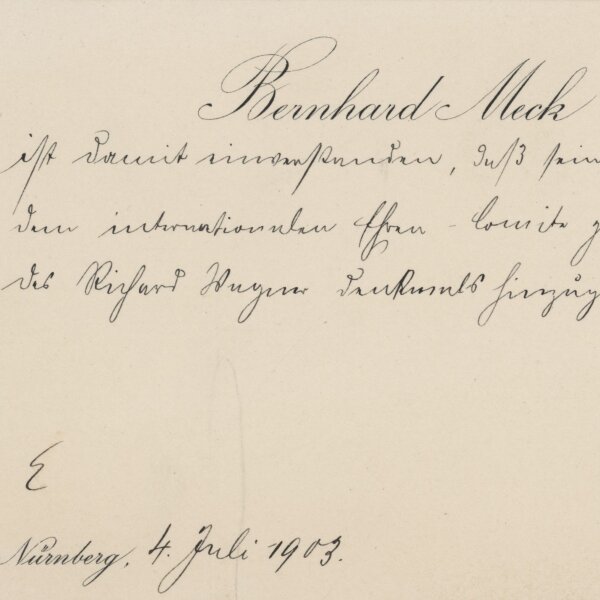 Bernhard Meck
ist damit einverstanden, daß sein
dem internationalen Ehren-Comite g
des Richard Wagner Denkmals hinzug
E
Nürnberg, 4. Juli 1903.